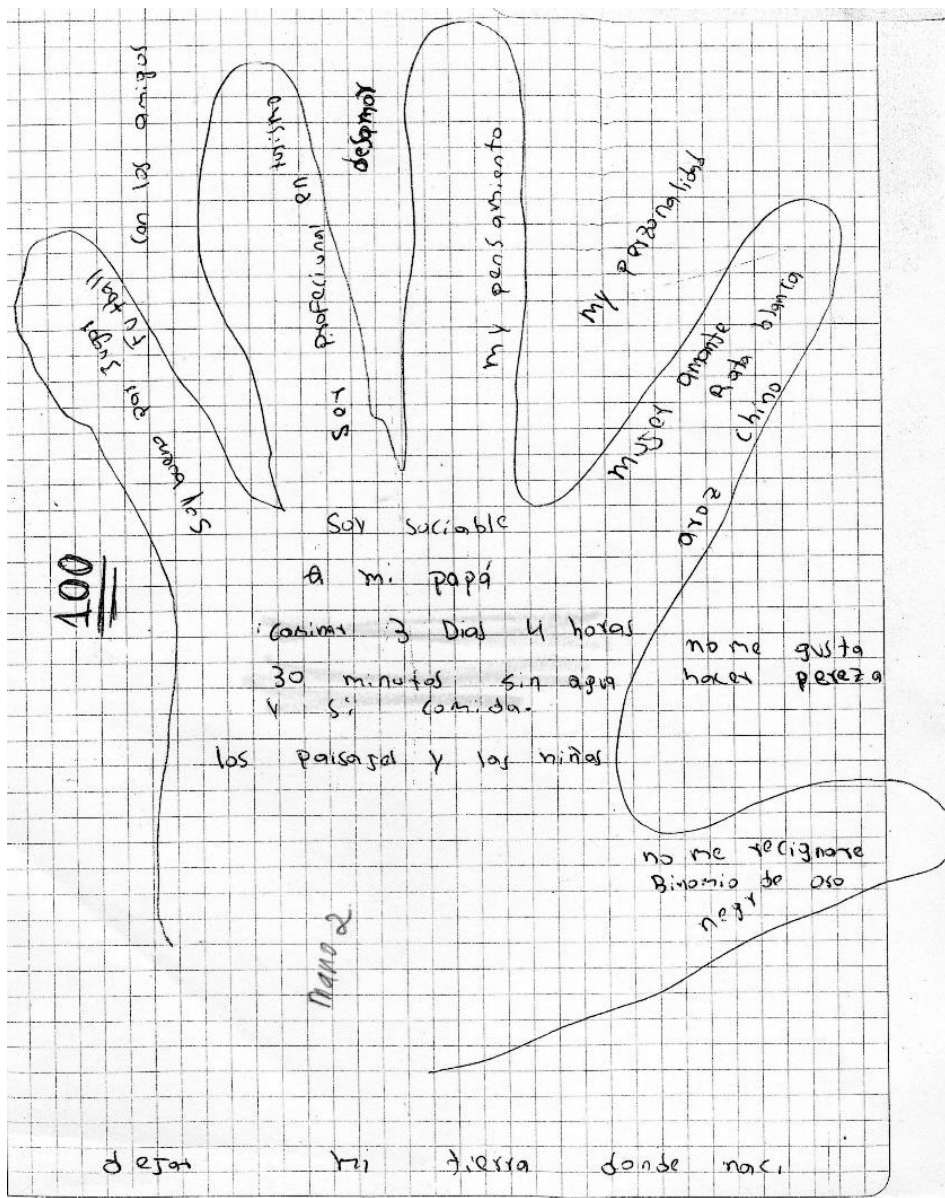 con los amigos
soy bueno par jugar
futball
soy profecional en
turismo
desamor
my pensamiento
my perzonalidad
musger amante
Rata blanca
aroz chino
soy sociable
100
a mi papá
caminar 3 Dias 4 horas
30 minutos sin agua
y si comida.
los paisages y las niñas
no me gusta
hacer pereza
no me recignare
Binomio de oro
negr
mano 2
dejar mi tierra donde naci